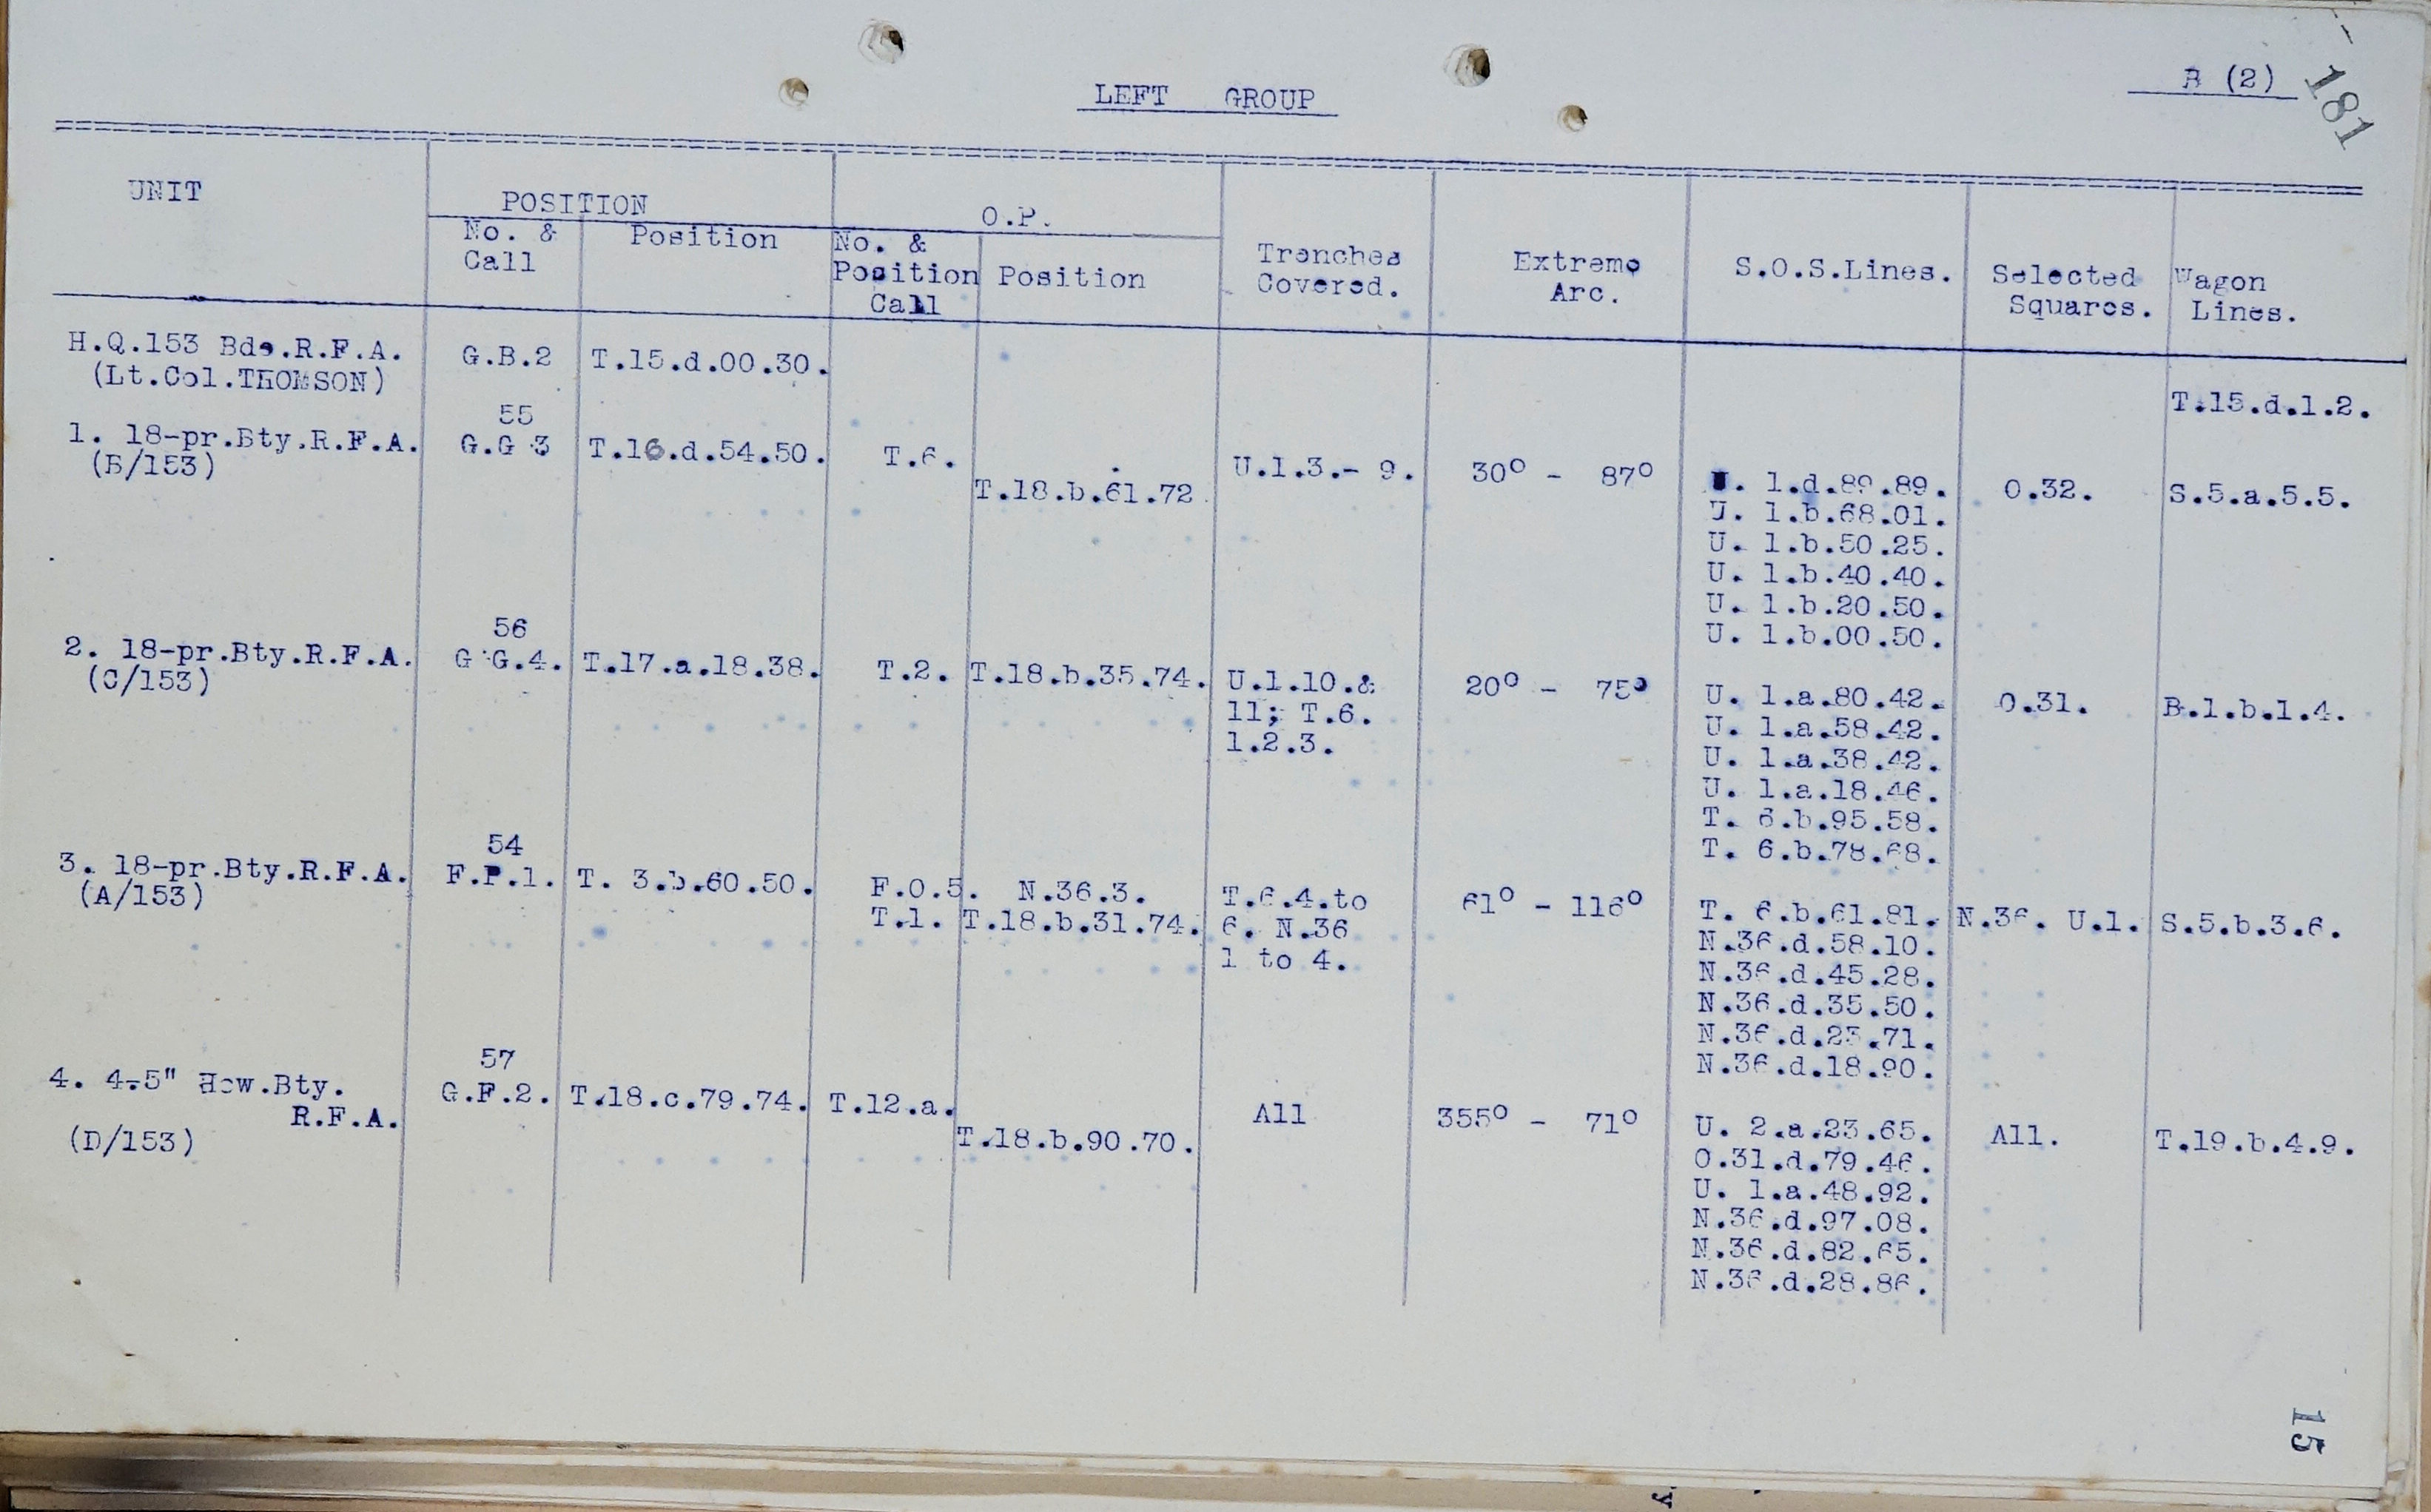 B (2)
181
LEFT GROUP
UNIT
POSITION
No. & Call
Position
O.P.
No. & Position Call
Position
Trenches Covered.
Extreme Arc.
S.O.S.Lines.
Selected Squares.
Wagon Lines.
H.Q.153 Bde.R.F.A. G.B.2 T.15.d.00.30.
(Lt.Col.THOMSON)
T.15.d.1.2.
55
1. 18-pr.Bty.R.F.A. G.G 3 T.16.d.54.50. T.6. U.1.3.- 9. 30° - 87° U. 1.d.89.89. O.32. S.5.a.5.5.
(B/153) T.18.b.61.72
U. 1.b.68.01.
U. 1.b.50.25.
U. 1.b.40.40.
U. 1.b.20.50.
U. 1.b.00.50.
56
2. 18-pr.Bty.R.F.A. G.G.4. T.17.a.18.38. T.2. T.18.b.35.74. U.1.10.& 20° - 75° U. 1.a.80.42. O.31. B.1.b.1.4.
(C/153) 11; T.6. U. 1.a.58.42.
1.2.3. U. 1.a.38.42.
U. 1.a.18.46.
T. 6.b.95.58.
T. 6.b.78.68.
54
3. 18-pr.Bty.R.F.A. F.P.1. T. 3.b.60.50. F.O.5. N.36.3. T.6.4.to 61° - 116° T. 6.b.61.81. N.36. U.1. S.5.b.3.6.
(A/153) T.1. T.18.b.31.74. 6. N.36 N.36.d.58.10.
1 to 4. N.36.d.45.28.
N.36.d.35.50.
N.36.d.23.71.
N.36.d.18.90.
57
4. 4.5" How.Bty. G.F.2. T.18.c.79.74. T.12.a. All 355° - 71° U. 2.a.23.65. All. T.19.b.4.9.
R.F.A. T.18.b.90.70. O.31.d.79.46.
(D/153) U. 1.a.48.92.
N.36.d.97.08.
N.36.d.82.65.
N.36.d.28.86.
15
y